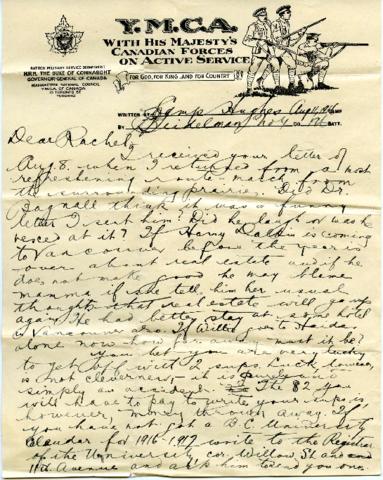 Y.M.C.A.
WITH HIS MAJESTY'S
CANADIAN FORCES
ON ACTIVE SERVICE
PATRON MILITARY SERVICE DEPARTMENT
H.R.H. THE DUKE OF CONNAUGHT
GOVERNOR GENERAL OF CANADA
HEADQUARTERS NATIONAL COUNCIL
Y.M.C.A. OF CANADA
TORONTO
FOR GOD, FOR KING, AND FOR COUNTRY
WRITTEN Camp Hughes Aug 11, 1916
BY No 4 Co 196 BATT.
Dear Rachel,
I received your letter of
Aug. 8. when I returned from a most
refreshening route march from
the surrounding prairie. Did Dr.
Tagnall think it was a funny
letter I sent him? Did he laugh or was he
at it? If Harry is coming
to Vancouver before the year is
over about real estate and if he
does not make good he may blame
mamma if she tell him her usual
thoughts that real estate will go up
again. He had better stay at some hotel
in Vancouver also. If Willie goes to
alone now how far away must it be?
You bet you are very lucky
to get off with 2 sups. Luck however,
is not cleverness, it is
simply an accident. The $2 you
will have to pay to write your sups is
however, money thrown away. If
you have not got a B.C. University
Calendar for 1916-1917 write to the Registrar
of the University, cor. Willow St. and
11th Avenue and ask him to send you one.